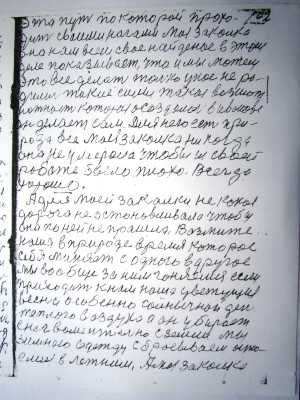 762
Эта путь по которой прохо-
дит своими ногами моя закалка
она нам всем свое найденое в этом
деле показывает что и мы можем
это все делат только у нас не ро-
дилис такие силы такая возмож
ность которая создана в
он делает сам. Для него ест при-
рода все моя закалка никогда
она не умерала чтобы в своей
работе было плохо. Всегда
хорошо.
А для моей закалки не какая
дорога не остоновливала чтобы
они по ней не прашли. Возмите
наша в природе время которое
себя меняет с одного в другое
мы вообще за ним гоняемся если
приходит к нам наша цветущия
весна особенно солнычной ден
теплого воздуха а он убирает
снег моментално с земли мы
зимнею одежду сбрасываем
в летнию. А моя закалка